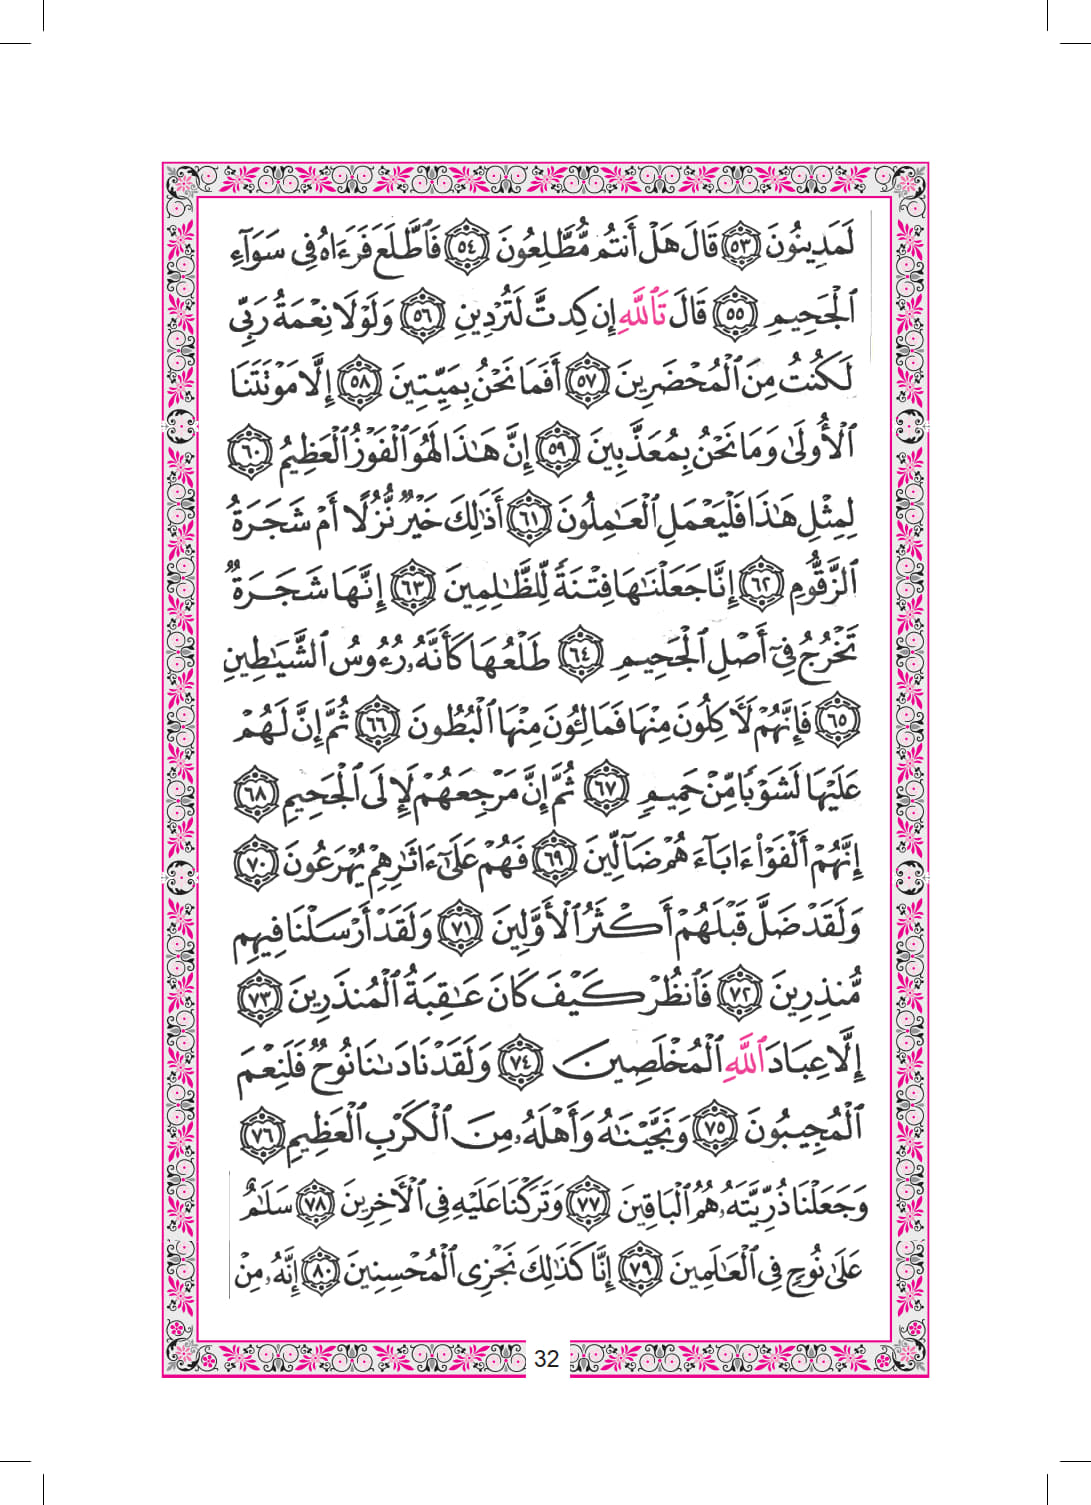 لَمَدِينُونَ ٥٣ قَالَ هَلْ أَنتُم مُّطَّلِعُونَ ٥٤ فَٱطَّلَعَ فَرَءَاهُ فِى سَوَآءِ
ٱلْجَحِيمِ ٥٥ قَالَ تَٱللَّهِ إِن كِدتَّ لَتُرْدِينِ ٥٦ وَلَوْلَا نِعْمَةُ رَبِّى
لَكُنتُ مِنَ ٱلْمُحْضَرِينَ ٥٧ أَفَمَا نَحْنُ بِمَيِّتِينَ ٥٨ إِلَّا مَوْتَتَنَا
ٱلْأُولَىٰ وَمَا نَحْنُ بِمُعَذَّبِينَ ٥٩ إِنَّ هَٰذَا لَهُوَ ٱلْفَوْزُ ٱلْعَظِيمُ ٦٠
لِمِثْلِ هَٰذَا فَلْيَعْمَلِ ٱلْعَٰمِلُونَ ٦١ أَذَٰلِكَ خَيْرٌ نُّزُلًا أَمْ شَجَرَةُ
ٱلزَّقُّومِ ٦٢ إِنَّا جَعَلْنَٰهَا فِتْنَةً لِّلظَّٰلِمِينَ ٦٣ إِنَّهَا شَجَرَةٌ
تَخْرُجُ فِىٓ أَصْلِ ٱلْجَحِيمِ ٦٤ طَلْعُهَا كَأَنَّهُۥ رُءُوسُ ٱلشَّيَٰطِينِ
٦٥ فَإِنَّهُمْ لَءَاكِلُونَ مِنْهَا فَمَالِـُٔونَ مِنْهَا ٱلْبُطُونَ ٦٦ ثُمَّ إِنَّ لَهُمْ
عَلَيْهَا لَشَوْبًا مِّنْ حَمِيمٍ ٦٧ ثُمَّ إِنَّ مَرْجِعَهُمْ لَإِلَى ٱلْجَحِيمِ ٦٨
إِنَّهُمْ أَلْفَوْا۟ ءَابَآءَهُمْ ضَآلِّينَ ٦٩ فَهُمْ عَلَىٰٓ ءَاثَٰرِهِمْ يُهْرَعُونَ ٧٠
وَلَقَدْ ضَلَّ قَبْلَهُمْ أَكْثَرُ ٱلْأَوَّلِينَ ٧١ وَلَقَدْ أَرْسَلْنَا فِيهِم
مُّنذِرِينَ ٧٢ فَٱنظُرْ كَيْفَ كَانَ عَٰقِبَةُ ٱلْمُنذَرِينَ ٧٣
إِلَّا عِبَادَ ٱللَّهِ ٱلْمُخْلَصِينَ ٧٤ وَلَقَدْ نَادَىٰنَا نُوحٌ فَلَنِعْمَ
ٱلْمُجِيبُونَ ٧٥ وَنَجَّيْنَٰهُ وَأَهْلَهُۥ مِنَ ٱلْكَرْبِ ٱلْعَظِيمِ ٧٦
وَجَعَلْنَا ذُرِّيَّتَهُۥ هُمُ ٱلْبَاقِينَ ٧٧ وَتَرَكْنَا عَلَيْهِ فِى ٱلْأَخِرِينَ ٧٨ سَلَٰمٌ
عَلَىٰ نُوحٍ فِى ٱلْعَٰلَمِينَ ٧٩ إِنَّا كَذَٰلِكَ نَجْزِى ٱلْمُحْسِنِينَ ٨٠ إِنَّهُۥ مِنْ
32